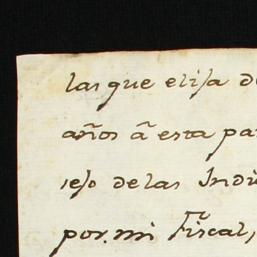 las que elija d
años â esta pa
sejo de las Indi
por mi Fiscal,